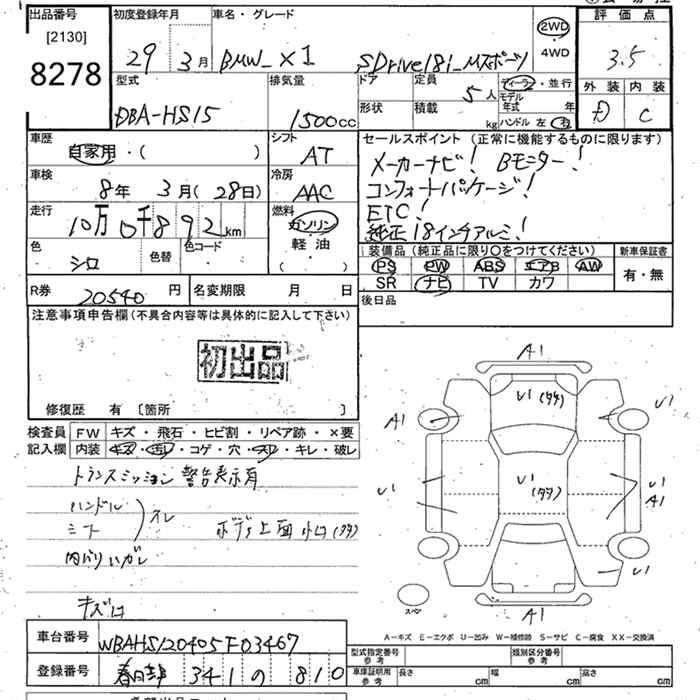 出品番号
[2130]
8278
初度登録年月
29年 3月
車名・グレード
BMW_X1 SDrive18i_Mスポーツ
2WD
4WD
評価点
3.5
外装 内装
D C
型式
DBA-HS15
排気量
1500cc
ドア 定員 5人
形状 積載 kg
ディーラー・並行
モデル年式 年
ハンドル 左 右
車歴
自家用・( )
シフト
AT
車検
8年 3月(28日)
冷房
AAC
走行
10万0千892km
燃料
ガソリン
軽油
( )
色
シロ
色替
色コード
セールスポイント (正常に機能するものに限ります)
メーカーナビ! Bモニター!
コンフォートパッケージ!
ETC!
純正18インチアルミ!
装備品(純正品に限り○をつけてください)
PS PW ABS エアB AW
SR ナビ TV カワ
新車保証書
有・無
後日品
R券 20540円
名変期限 月 日
注意事項申告欄(不具合内容等は具体的に記入して下さい)
初出品
修復歴 有 〔箇所 〕
検査員記入欄
FW キズ・飛石・ヒビ割・リペア跡・×要
内装 キズ・汚レ・コゲ・穴・スレ・キレ・破レ
トランスミッション 警告表示有
ハンドル
シート
スレ
ボディ上面 小凹(多々)
内バリハガレ
キズ凹
A1
U1(多々)
A1
U1
U1(多々)
U1
A1
U1
スペア
A1
A-キズ E-エクボ U-凹み W-補修跡 S-サビ C-腐食 XX-交換済
車台番号
WBAHS120405F03467
登録番号
春日部 341 の 810
型式指定番号
参考
類別区分番号
参考
車庫証明用
参考
長さ cm
幅 cm
高さ cm